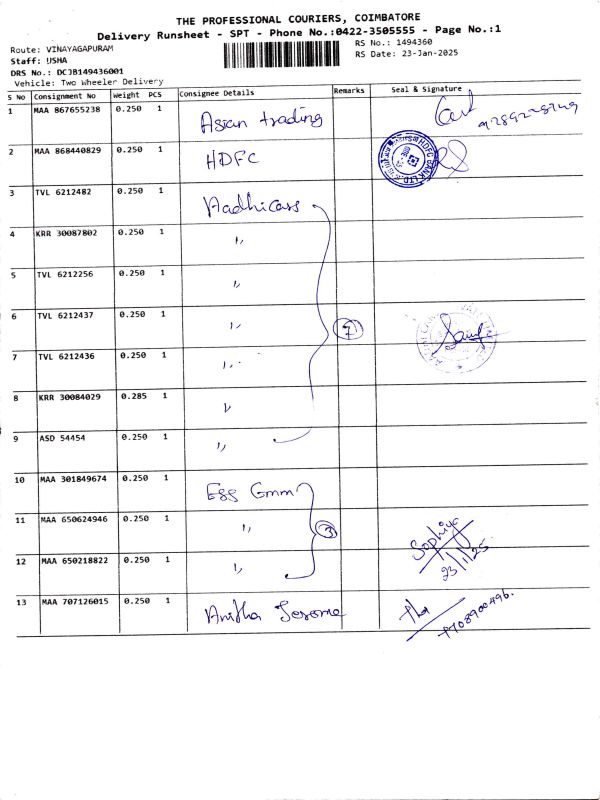 THE PROFESSIONAL COURIERS, COIMBATORE
Delivery Runsheet - SPT - Phone No.:0422-3505555 - Page No.:1
Route: VINAYAGAPURAM
RS No.: 1494360
Staff: USHA
RS Date: 23-Jan-2025
DRS No.: DCJB149436001
Vehicle: Two Wheeler Delivery
S No Consignment No Weight PCS Consignee Details Remarks Seal & Signature
1 MAA 867655238 0.250 1 Asian trading
2 MAA 868440829 0.250 1 HDFC
HDFC BANK LTD
3 TVL 6212482 0.250 1 Aadhicars
4 KRR 30087802 0.250 1 "
5 TVL 6212256 0.250 1 "
6 TVL 6212437 0.250 1 " 7
7 TVL 6212436 0.250 1 "
8 KRR 30084029 0.285 1 "
9 ASD 54454 0.250 1 "
10 MAA 301849674 0.250 1 Ess Gmm
11 MAA 650624946 0.250 1 " 3 Sophiya
12 MAA 650218822 0.250 1 " 23/1/25
13 MAA 707126015 0.250 1 Anitha Jerome